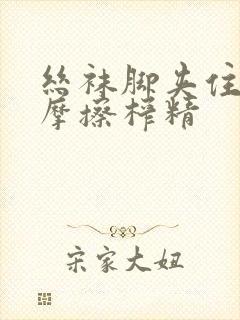 丝袜脚夹住
摩擦榨精
宋家大妞